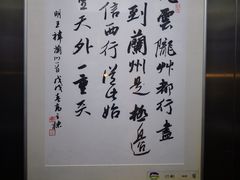 雲隴艸都行盡
到蘭州是極邊
信西行從此始
重天外一重天
明王禕蘭州一首戊戌